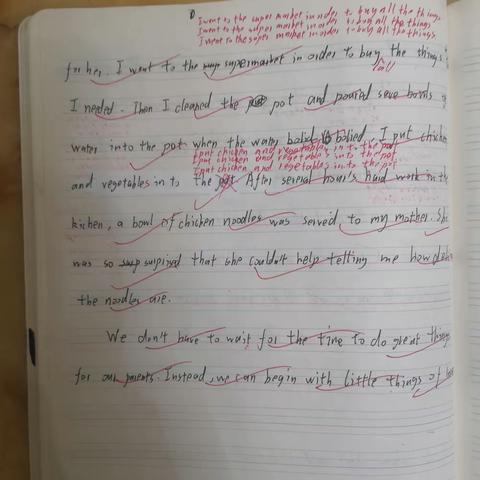 I went to the super market in order to buy all the things
I went to the super market in order to buy all the things
I went to the super market in order to buy all the things
for her. I went to the supermarket in order to buy the things
(all
I needed. Then I cleaned the pot and poured seve bowls of
water into the pot when the water boiled I put chicken
I put chicken and vegetables in to the pot
I put chicken and vegetables in to the pot
I put chicken and vegetables in to the pot
and vegetables in to the pot After several hour's hard work in the
kichen, a bowl of chicken noodles was served to my mother. She
was so surprised that she couldn't help telling me how
the noodles are.
We don't have to wait for the time to do great things
for our parents. Instead, we can begin with little things of